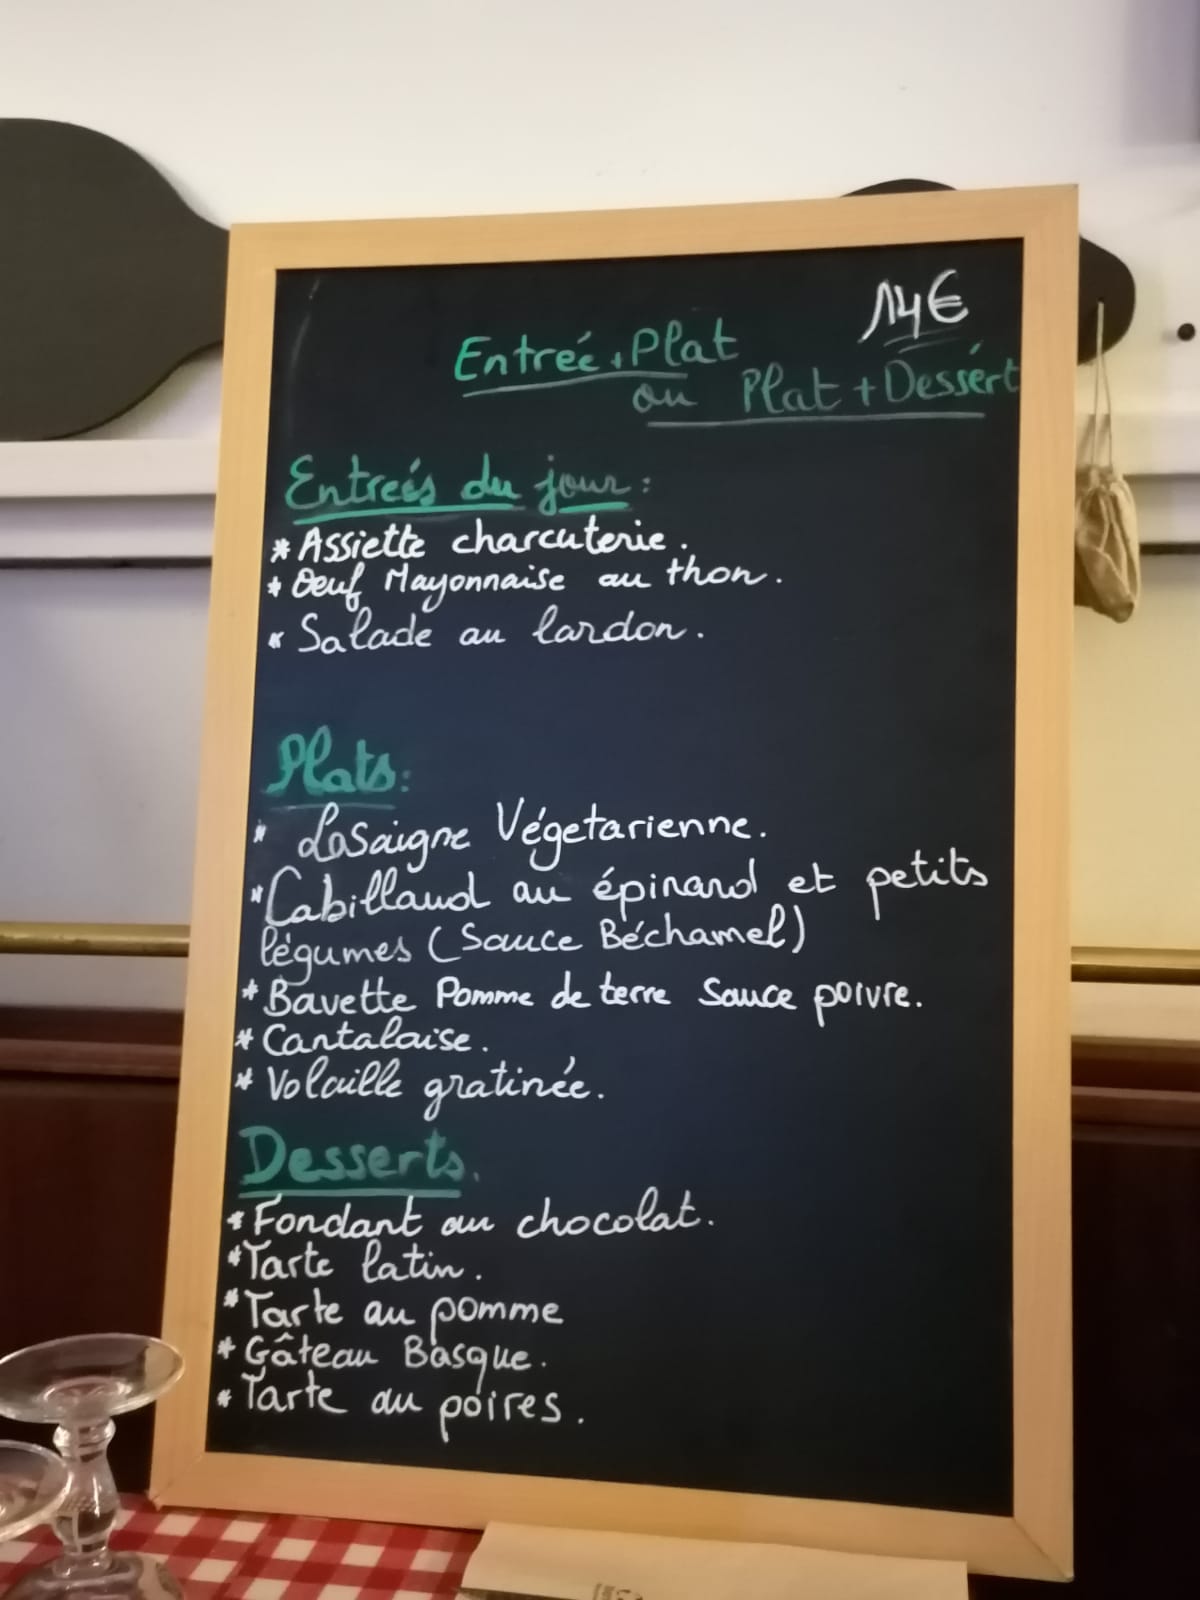 14€
Entreé+Plat
ou Plat+Dessért
Entreés du jour :
* Assiette charcuterie.
* Oeuf Mayonnaise au thon.
* Salade au lardon.
Plats:
* Lasaigne Végetarienne.
* Cabillaud au épinard et petits
légumes (Sauce Béchamel)
* Bavette Pomme de terre Sauce poivre.
* Cantalaise.
* Volaille gratinée.
Desserts.
* Fondant au chocolat.
* Tarte latin.
* Tarte au pomme
* Gâteau Basque.
* Tarte au poires.